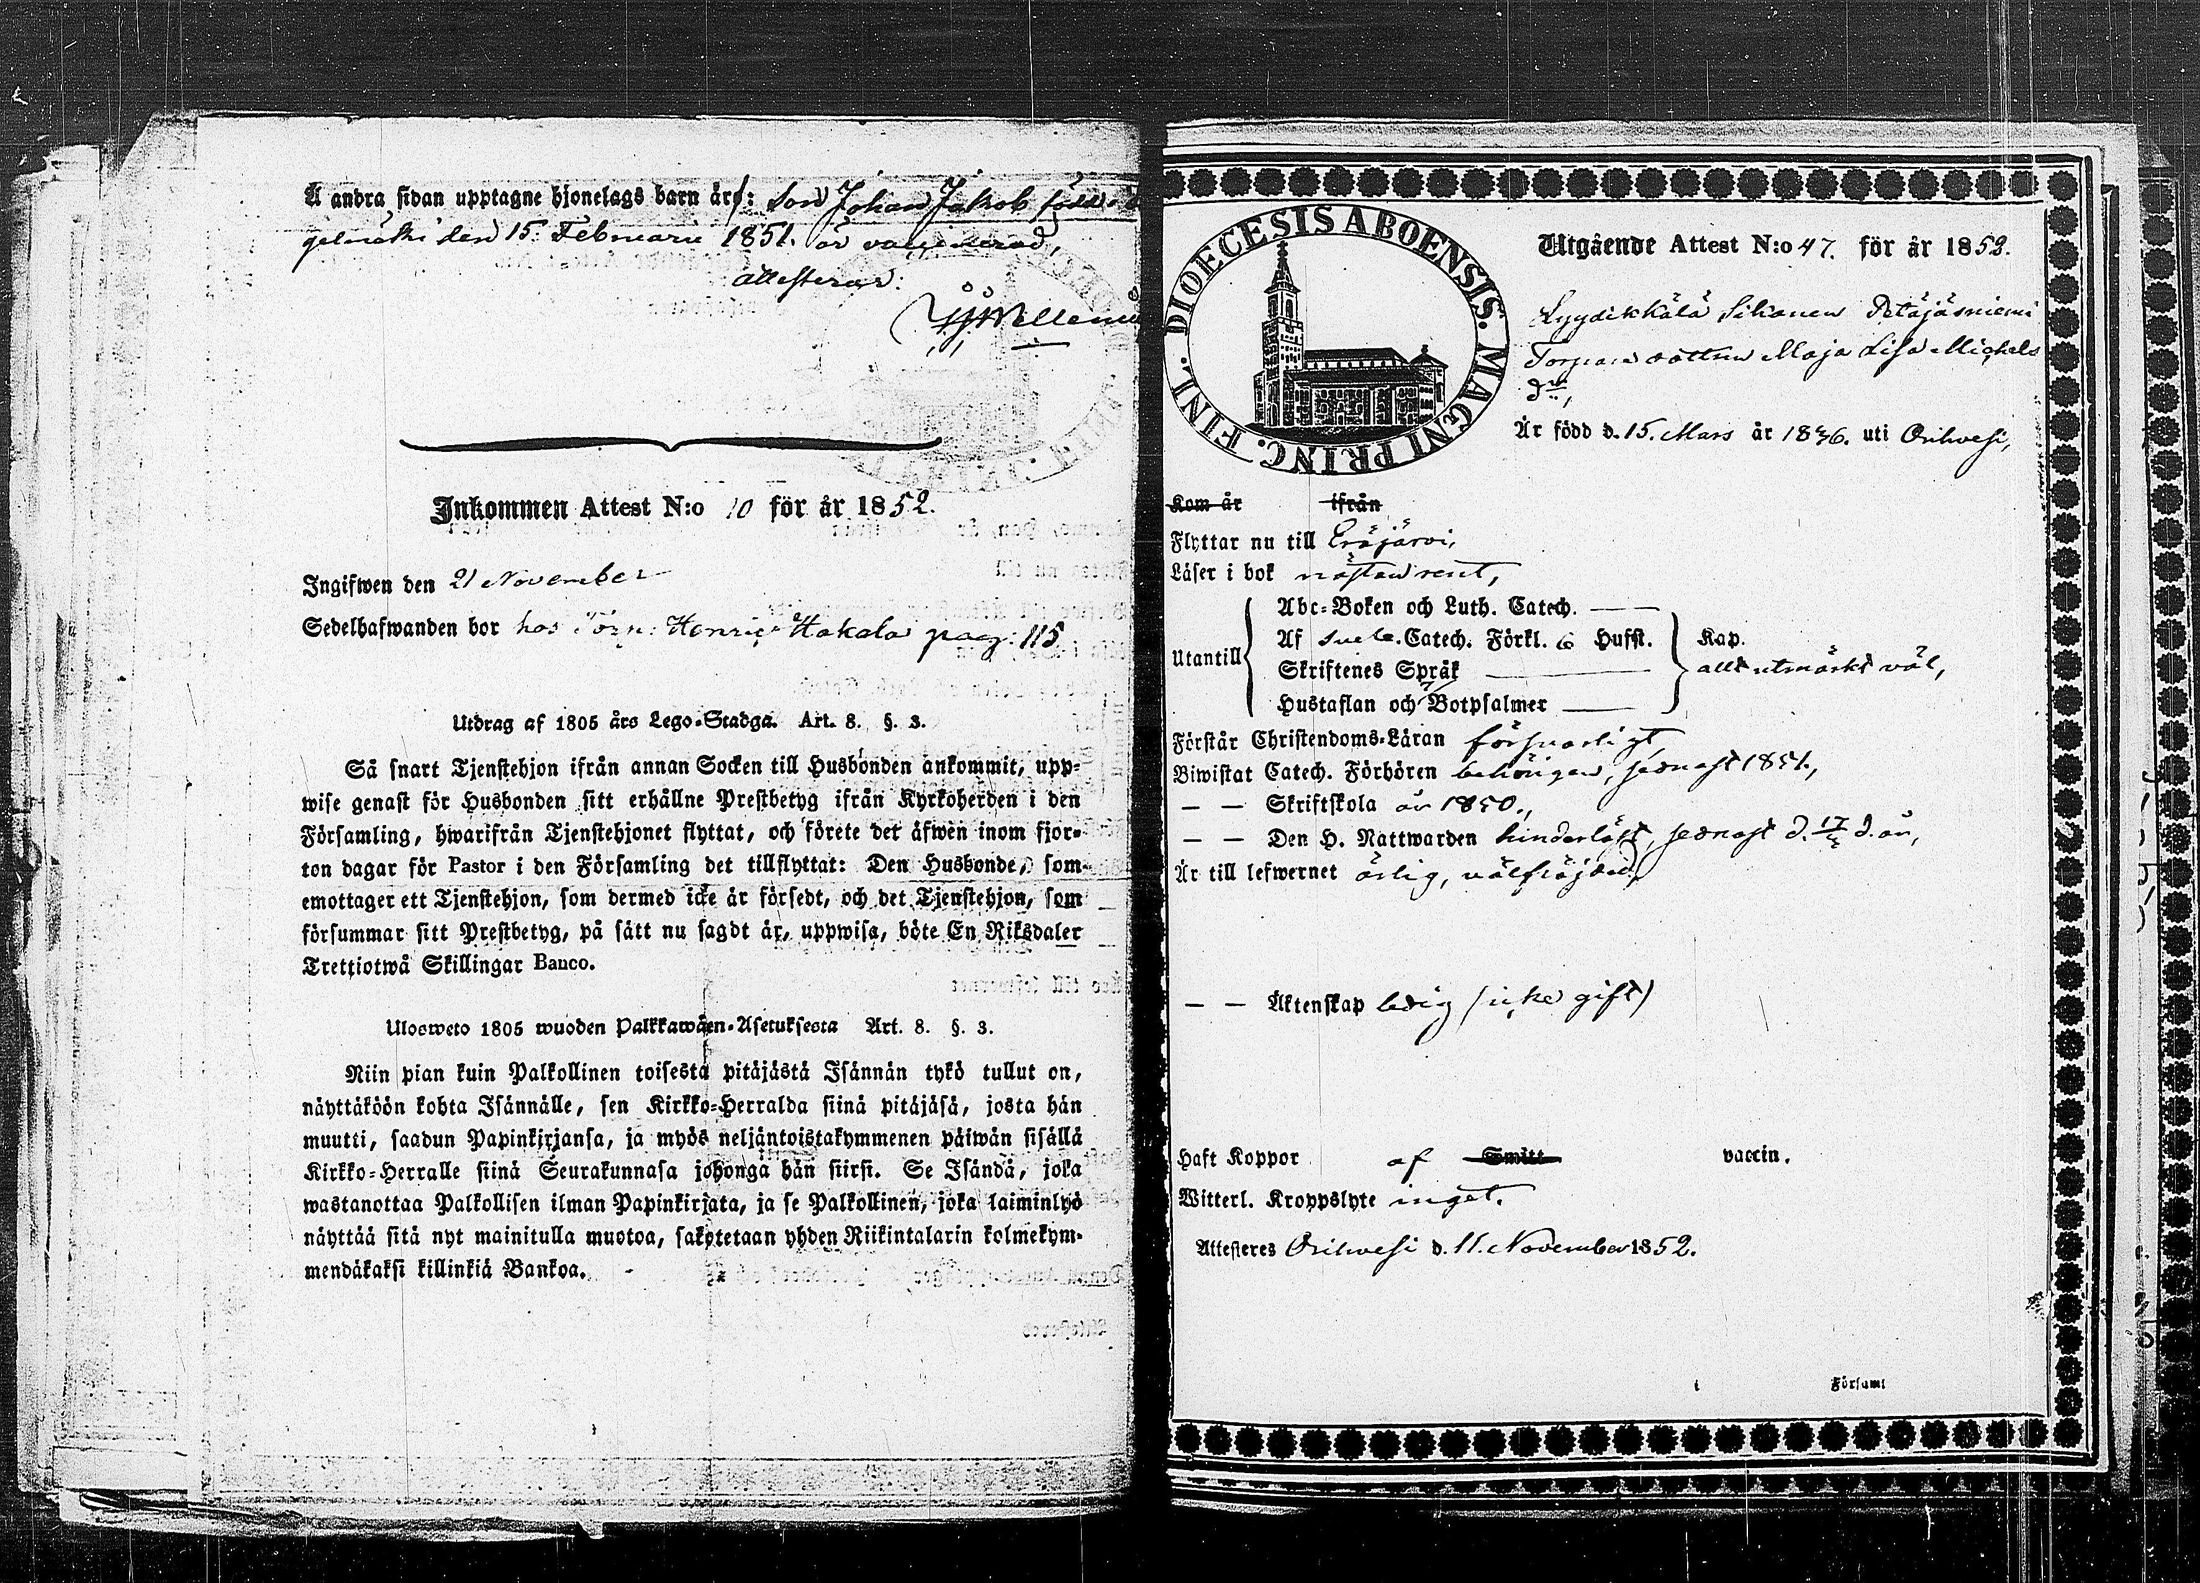 Å andra sidan upptagne hjonelags barn äro: Son Johan Jakob född i
gelmäki den 15. Februarii 1851. är vaccinerad,
attesterar:
Inkommen Attest N:o 10 för år 1852.
Ingifwen den 21 November
Sedelhafwanden bor hos Torp: Henric Hakala pag: 115
Utdrag af 1805 års Lego-Stadga. Art. 8. §. 3.
Så snart Tjenstehjon ifrån annan Socken till Husbonden ankommit, upp-
wise genast för Husbonden sitt erhållne Prestbetyg ifrån Kyrkoherden i den
Församling, hwarifrån Tjenstehjonet flyttat, och förete det äfwen inom fjor-
ton dagar för Pastor i den Församling det tillflyttat: Den Husbonde, som
emottager ett Tjenstehjon, som dermed icke är försedt, och det Tjenstehjon, som
försummar sitt Prestbetyg, på sätt nu sagdt är, uppwisa, böte En Riksdaler
Trettiotwå Skillingar Banco.
Ulosweto 1805 wuoden Palkkawäen-Asetuksesta Art. 8. §. 3.
Niin pian kuin Palkollinen toisesta pitäjästä Isännän tykö tullut on,
näyttäköön kohta Isännälle, sen Kirkko-Herralda siinä pitäjäsä, josta hän
muutti, saadun Papinkirjansa, ja myös neljäntoistakymmenen päiwän sisällä
Kirkko-Herralle siinä Seurakunnasa johonga hän siirsi. Se Isändä, joka
wastanottaa Palkollisen ilman Papinkirjata, ja se Palkollinen, joka laiminlyö
näyttää sitä nyt mainitulla muotoa, sakotetaan yhden Riikintalarin kolmekym-
mendäkaksi killinkiä Bankoa.
DIOECESIS ABOENSIS. MAGNI PRINC. FINL.
Utgående Attest N:o 47. för år 1852.
Lyydikkälä Sihanen Petäjäsniemi
Torpare dottren Maja Lisa Michels
dr,
Är född d. 15. Mars år 1836. uti Orihvesi,
Kom år ifrån
Flyttar nu till Eräjärvi,
Läser i bok nästan rent,
Utantill
Abc-Boken och Luth. Catech.
Af Sveb. Catech. Förkl. 6 Hufst. Kap.
Skriftenes Språk allt utmärkt väl,
Hustaflan och 7 Botpsalmer
Förstår Christendoms-Läran försvarligt
Biwistat Catech. Förhören behörigen, senast 1851.,
— — Skriftskola år 1850.,
— — Den H. Nattwarden hinderlöst, senast d. d. år,
Är till lefwernet ärlig, välfräjdad,
— — Äktenskap ledig (icke gift)
Haft Koppor af Smitt vaccin.
Witterl. Kroppslyte inget.
Attesteres Orihvesi d. 11. November 1852.
i Församl